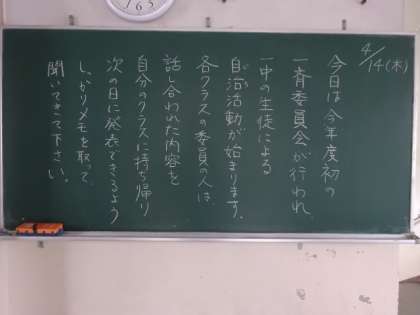 4/14(木)
今日は今年度初の
一斉委員会が行われ、
一中の生徒による
自治活動が始まります。
各クラスの委員の人は、
話し合われた内容を
自分のクラスに持ち帰り
次の日に発表できるよう
しっかりメモを取って、
聞いてきて下さい。